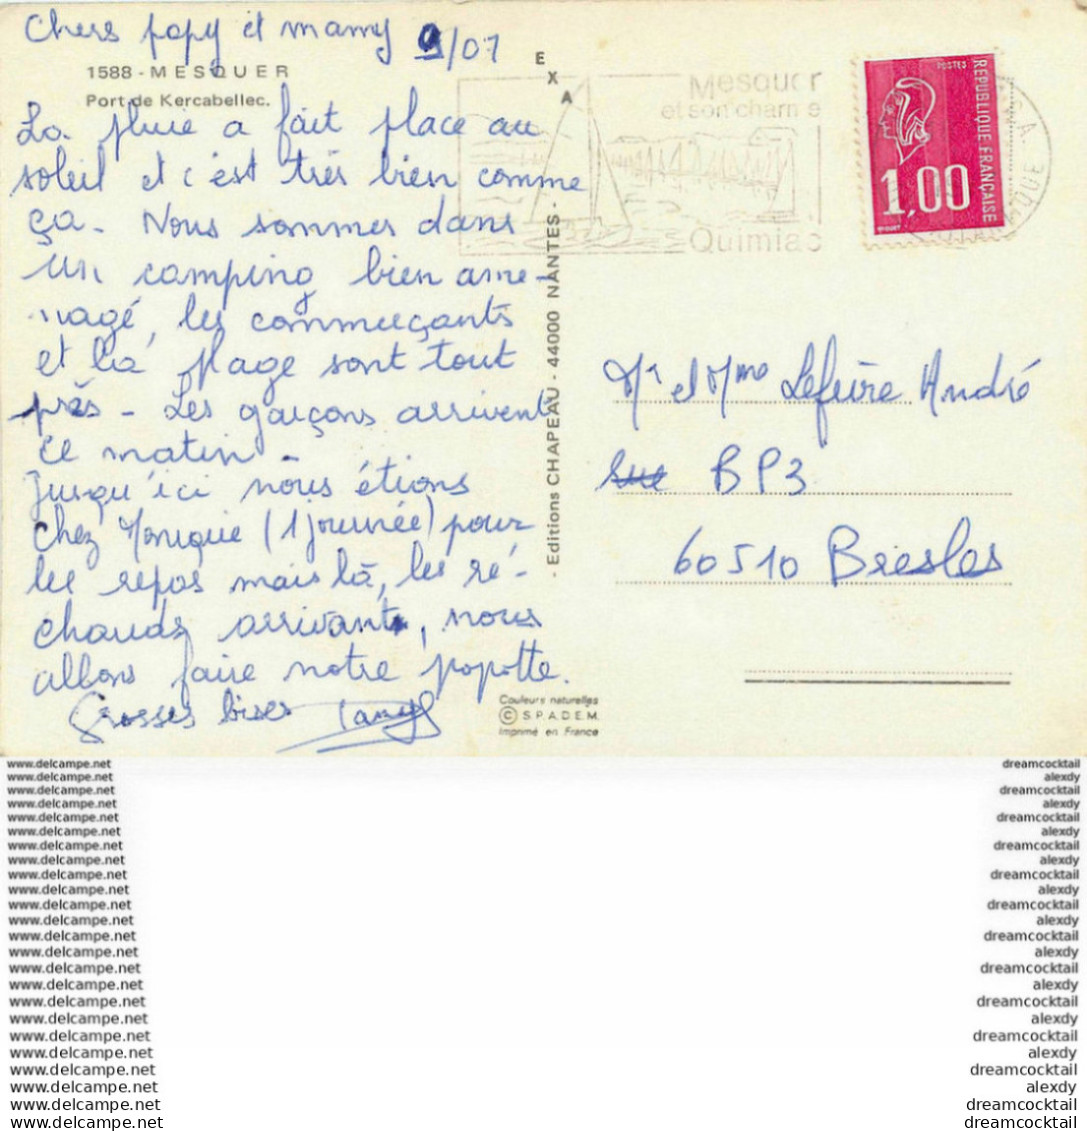 Chers papy et mamy 9/07
1588 - MESQUER
Port de Kercabellec.
La pluie a fait place au
soleil et c'est très bien comme
ça. Nous sommes dans
un camping bien amé-
nagé, les commerçants
et la plage sont tout
près - Les garçons arrivent
ce matin -
Jusqu'ici nous étions
chez Monique (1 journée) pour
les repas mais là, les ré-
chauds arrivant, nous
allons faire notre popotte.
Grosses bises Tany
EXA
- Editions CHAPEAU - 44000 NANTES -
Couleurs naturelles
© S.P.A.D.E.M.
Imprimé en France
Mesquer
et son charme
Quimiac
POSTES
REPUBLIQUE FRANÇAISE
1,00
Mr et Mme Lefèvre André
BP3
60510 Bresles
www.delcampe.net dreamcocktail
www.delcampe.net alexdy
www.delcampe.net dreamcocktail
www.delcampe.net alexdy
www.delcampe.net dreamcocktail
www.delcampe.net alexdy
www.delcampe.net dreamcocktail
www.delcampe.net alexdy
www.delcampe.net dreamcocktail
www.delcampe.net alexdy
www.delcampe.net dreamcocktail
www.delcampe.net alexdy
www.delcampe.net dreamcocktail
www.delcampe.net alexdy
www.delcampe.net dreamcocktail
www.delcampe.net alexdy
www.delcampe.net dreamcocktail
www.delcampe.net alexdy
www.delcampe.net dreamcocktail
www.delcampe.net alexdy
www.delcampe.net dreamcocktail
www.delcampe.net alexdy
www.delcampe.net dreamcocktail
www.delcampe.net dreamcocktail